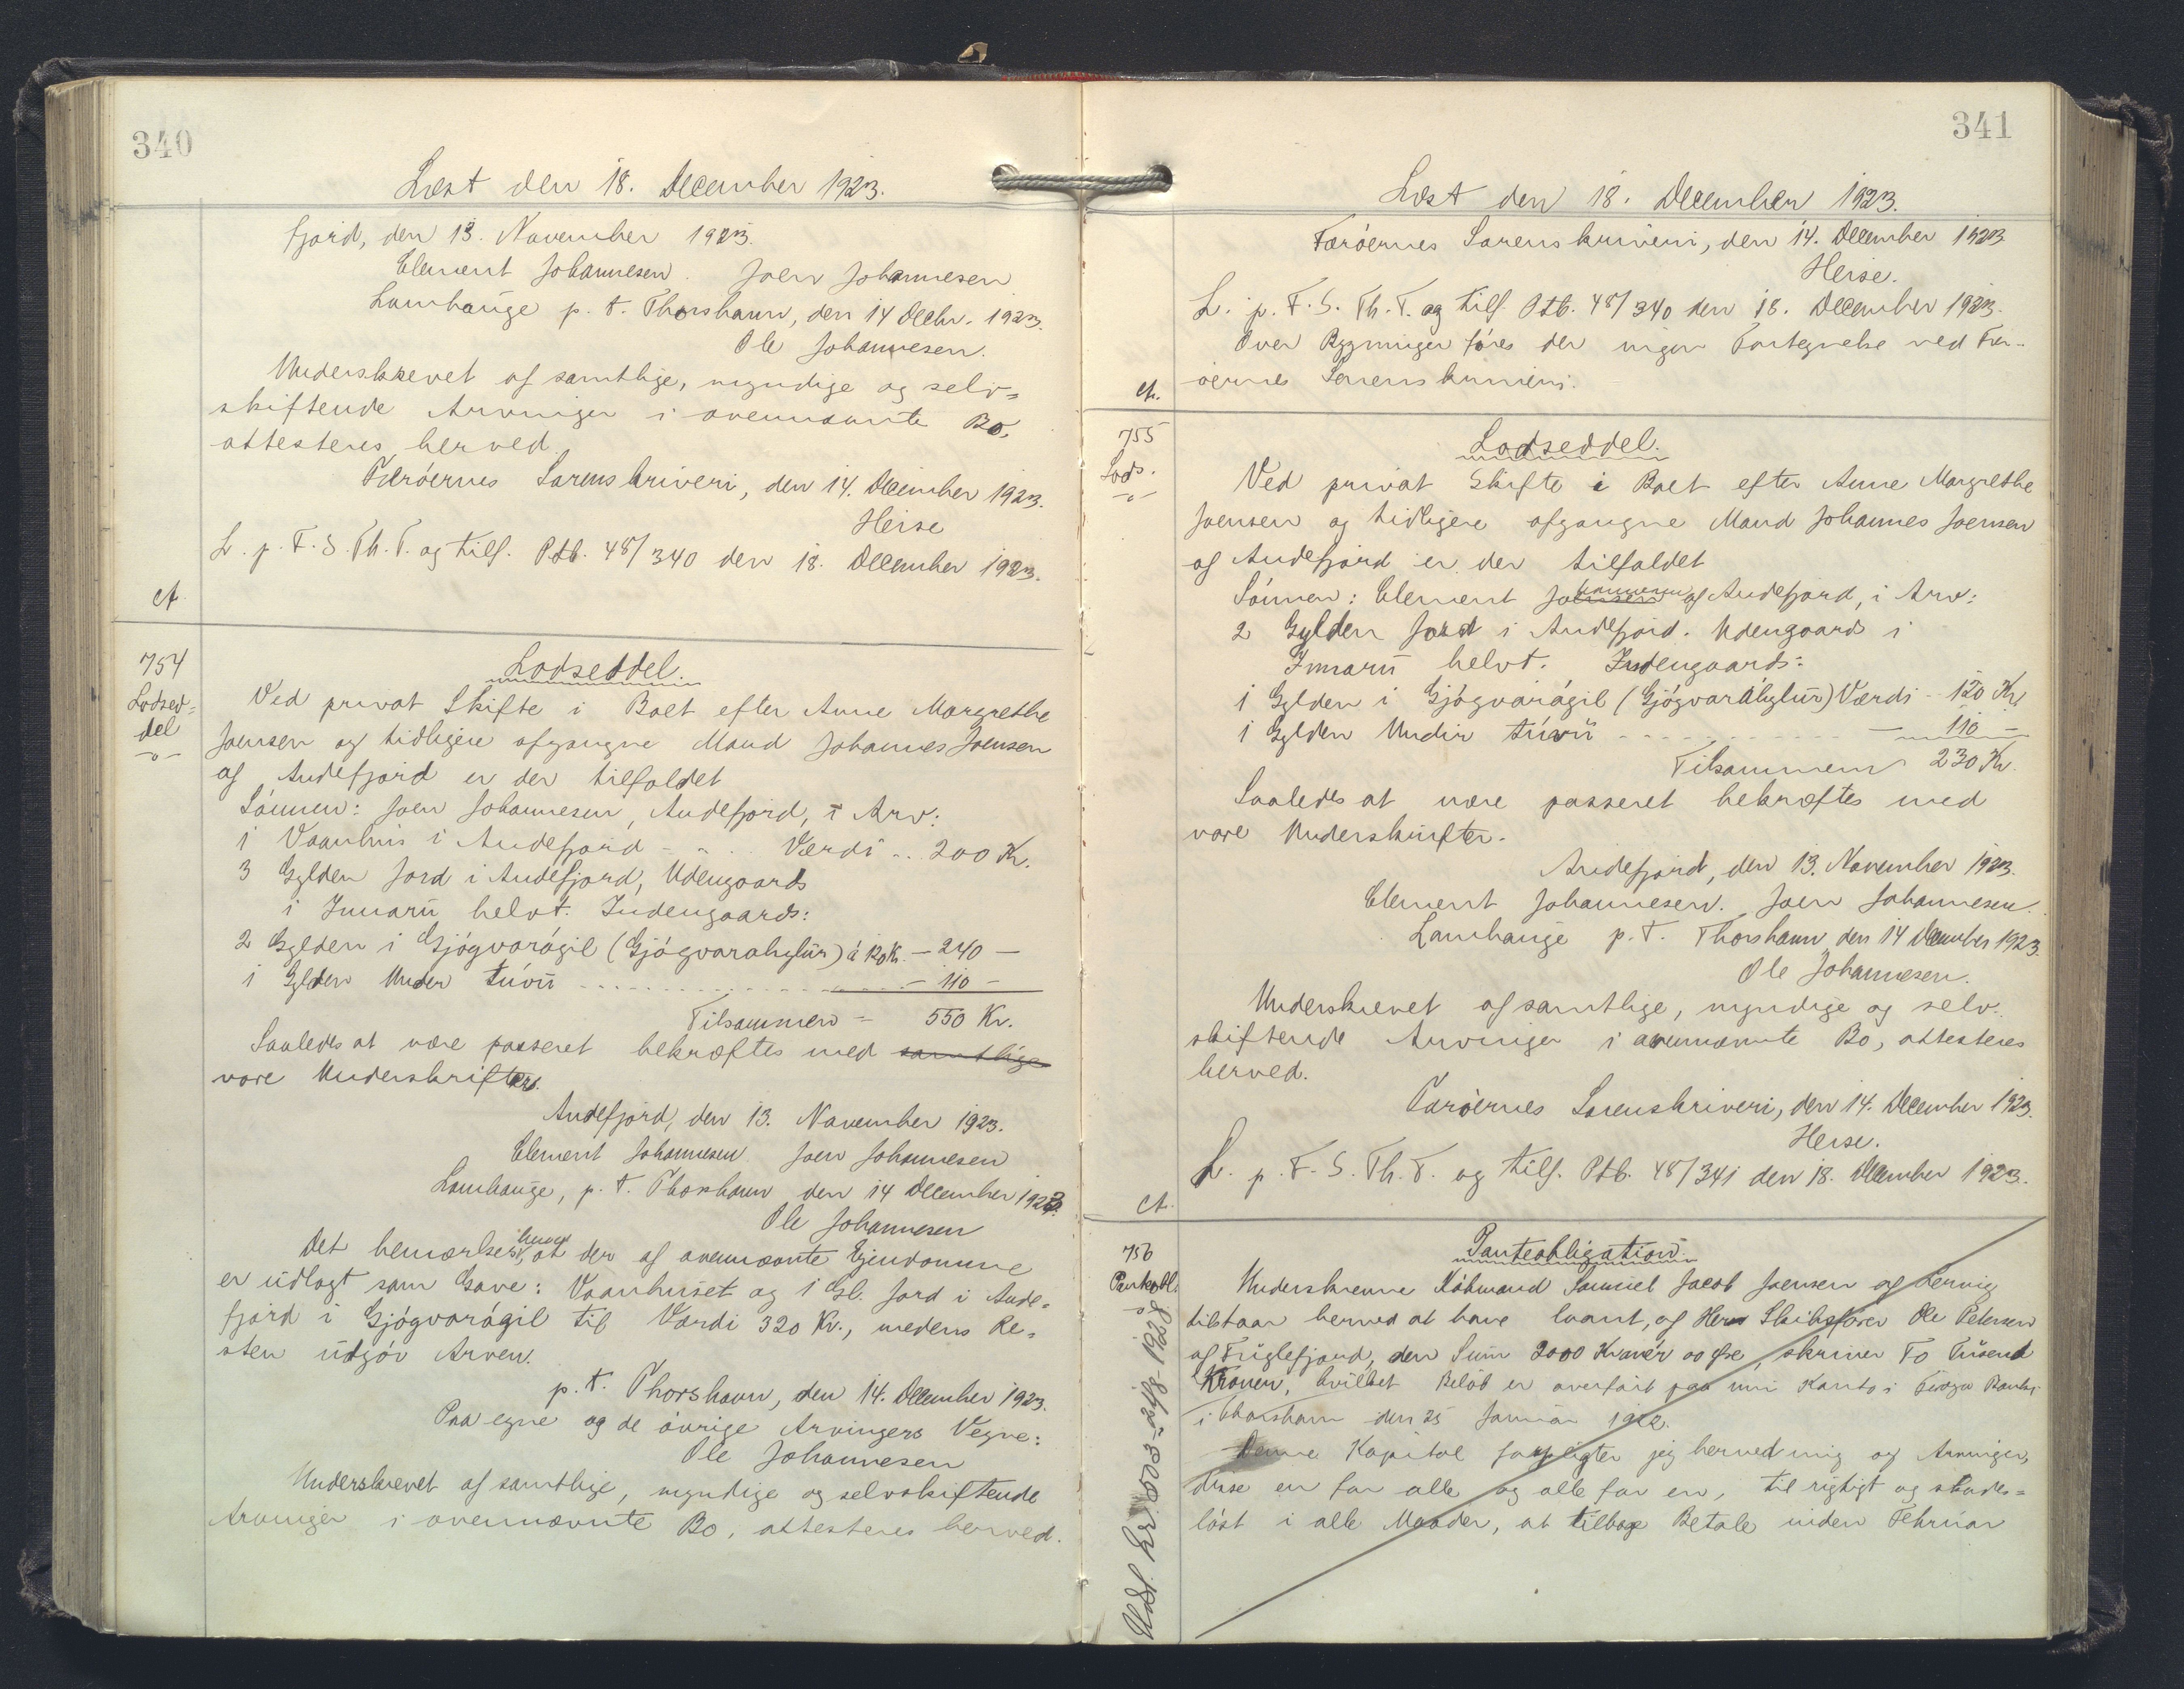 340
Læst den 18. December 1923.
fjord, den 13. November 1923.
Clement Johannesen. Joen Johannesen
Lamhauge p. t. Thorshavn, den 14 Decbr. 1923.
Ole Johannesen.
Underskrevet af samtlige, myndige og selv=
skiftende Arvinger i ovennævnte Bo,
attesteres herved.
Færöernes Sorenskriveri, den 14. December 1923.
Heise
L. p. F. S. Th. T. og tilf. Ptb. 48/340 den 18. December 1923.
ct.
754
Lodsed=
del
-o-
Lodseddel.
Ved privat Skifte i Boet efter Anne Margrethe
Joensen og tidligere afgangne Mand Johannes Joensen
af Andefjord er der tilfaldet
Sönnen: Joen Johannesen, Andefjord, i Arv:
1 Vaanhus i Andefjord - - . . Værdi .. 200 Kr.
3 Gylden Jord i Andefjord, Udengaards
i Innaru helvt. Indengaards:
2 Gylden i Gjógvarágil (Gjógvarahylur) á 120 Kr. - 240 -
1 Gylden Under túvu - - - - - - - 110 -
Tilsammen = 550 Kr.
Saaledes at være passeret bekræftes med samtlige
vore Underskrifter.
Andefjord, den 13. November 1923.
Clement Johannesen Joen Johannesen
Lamhauge, p. t. Thorshavn den 14 December 1923.
Ole Johannesen
Det bemærkes herved, at der af ovennævnte Ejendomme
er udlagt som Gave: Vaanhuset og 1 Gl. Jord i Ande=
fjord i Gjógvarágil til Værdi 320 Kr., medens Re=
sten udgör Arven.
p. t. Thorshavn, den 14. December 1923.
Paa egne og de övrige Arvingers Vegne:
Ole Johannesen
Underskrevet af samtlige, myndige og selvskiftende
Arvinger i ovennævnte Bo, attesteres herved.
341
Læst den 18. December 1923.
Færöernes Sorenskriveri, den 14. December 1923
Heise.
L. p. F. S. Th. T. og tilf. Ptb. 48/340 den 18. December 1923.
Over Bygninger föres der ingen Fortegnelse ved Fær-
öernes Sorenskriveri.
ct.
755
Lods.
-o-
Lodseddel.
Ved privat Skifte i Boet efter Anne Margrethe
Joensen og tidligere afgangne Mand Johannes Joensen
af Andefjord er der tilfaldet
Sönnen: Clement Johannesen af Andefjord, i Arv:
2 Gylden Jord i Andefjord. Udengaards i
Innaru helvt. Indengaards:
1 Gylden i Gjógvarágil (Gjógvaráhylur) Værdi - 120 Kr
1 Gylden Undir túvu - - - - - - - 110 -
Tilsammen 230 Kr.
Saaledes at være passeret bekræftes med
vore Underskrifter.
Andefjord, den 13. November 1923.
Clement Johannesen. Joen Johannesen.
Lamhauge p. t. Thorshavn den 14 December 1923.
Ole Johannesen.
Underskrevet af samtlige, myndige og selv-
skiftende Arvinger i ovennævnte Bo, attesteres
herved.
Færöernes Sorenskriveri, den 14. December 1923.
Heise.
L. p. F. S. Th. T. og tilf. Ptb. 48/341 den 18. December 1923.
ct.
756
Panteobl.
-o-
Panteobligation.
Underskrevne Köbmand Samuel Jacob Joensen af Lervig
tilstaar herved at have laant, af Herr Skibsförer Ole Petersen
af Fuglefjord, den Sum 2000 Kroner 00 Øre, skriver To Tusend
Kroner, hvilket Belöb er overfört paa min Konto i Föroya Banki
i Thorshavn den 25 Januar 1922.
Denne Kapital forpligter jeg herved mig og Arvinger,
disse en for alle og alle for en, til rigtigt og skades=
löst i alle Maader, at tilbage Betale inden Februar